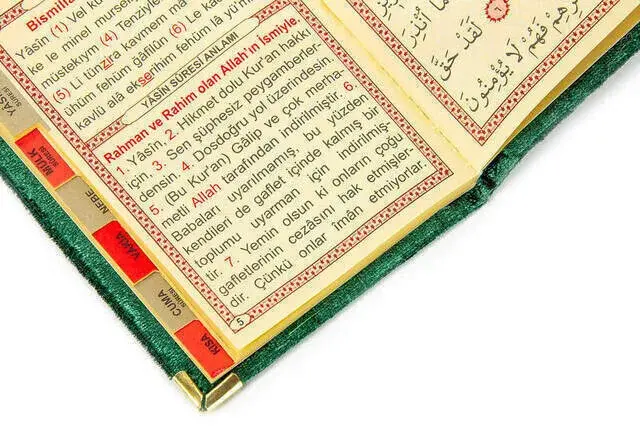 Bismillâ
Yâsîn (1) Vel ku
ke le minel mursel
müstekıym (4) Tenzîyle
(5) Li tünzira kavmem mâ
ühüm fehüm ğâfilûn (6) Le ka
kavlü alâ ekserihim fehüm lâ yü'mi
YÂSİN SÛRESİ ANLAMI
Rahman ve Rahim olan Allah'ın İsmiyle.
1. Yâsîn, 2. Hikmet dolu Kur'an hakkı
için, 3. Sen şüphesiz peygamberler-
densin. 4. Dosdoğru yol üzerindesin.
5. (Bu Kur'an) Gâlip ve çok merha-
metli Allah tarafından indirilmiştir. 6.
Babaları uyarılmamış, bu yüzden
kendileri de gaflet içinde kalmış bir
toplumu uyarman için indirilmiş-
tir. 7. Yemin olsun ki onların çoğu
gafletlerinin cezâsını hak etmişler-
dir. Çünkü onlar îmân etmiyorlar.
5
لَقَدْ حَقَّ
فَهُمْ لَا يُؤْمِنُونَ
٦
YÂSİN
SÛRESİ
MÜLK
SÛRESİ
NEBE
VAKIA
CUMA
SÛRESİ
KISA